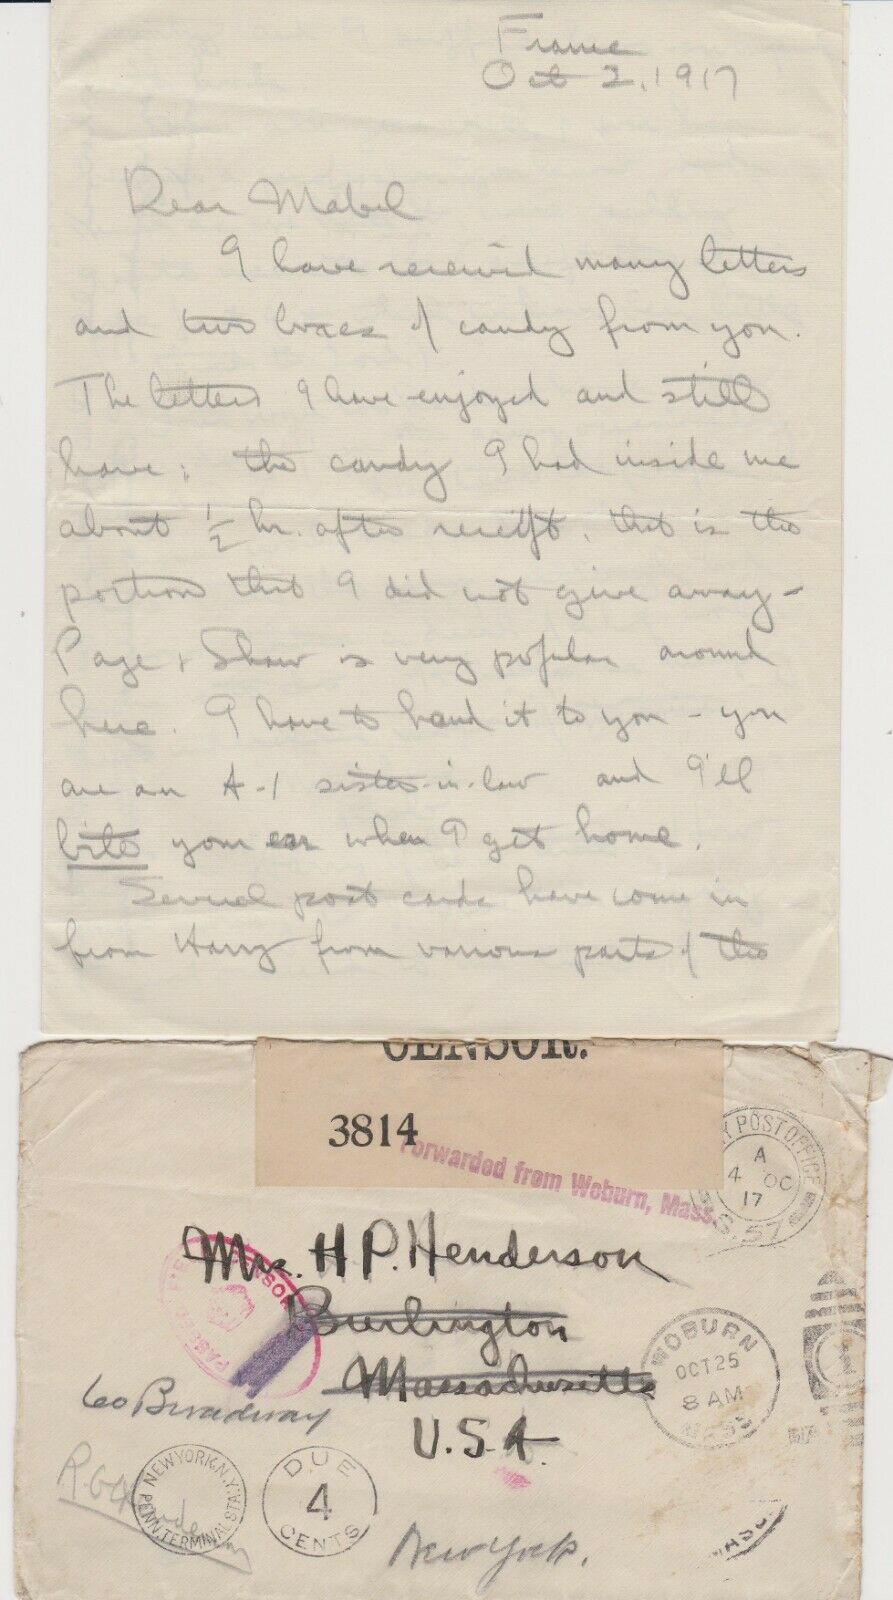 France
Oct 2, 1917
Dear Mabel
I have received many letters
and two boxes of candy from you.
The letters I have enjoyed and still
have; the candy I had inside me
about 1/2 hr. after receipt, that is the
portion that I did not give away –
Page & Shaw is very popular around
here. I have to hand it to you – you
are an A-1 sister-in-law and I'll
bite your ear when I get home.
Several post cards have come in
from Harry from various parts of the
CENSOR.
3814
Forwarded from Woburn, Mass.
POST OFFICE
A
4 OC
17
S.57
Mrs. H P. Henderson
PASSED CENSOR
Burlington
Massachusetts
U.S.A.
WOBURN
OCT 25
8 AM
MASS
60 Broadway
NEW YORK, N.Y.
PENN. TERMINAL STA.
DUE
4
CENTS
New York.